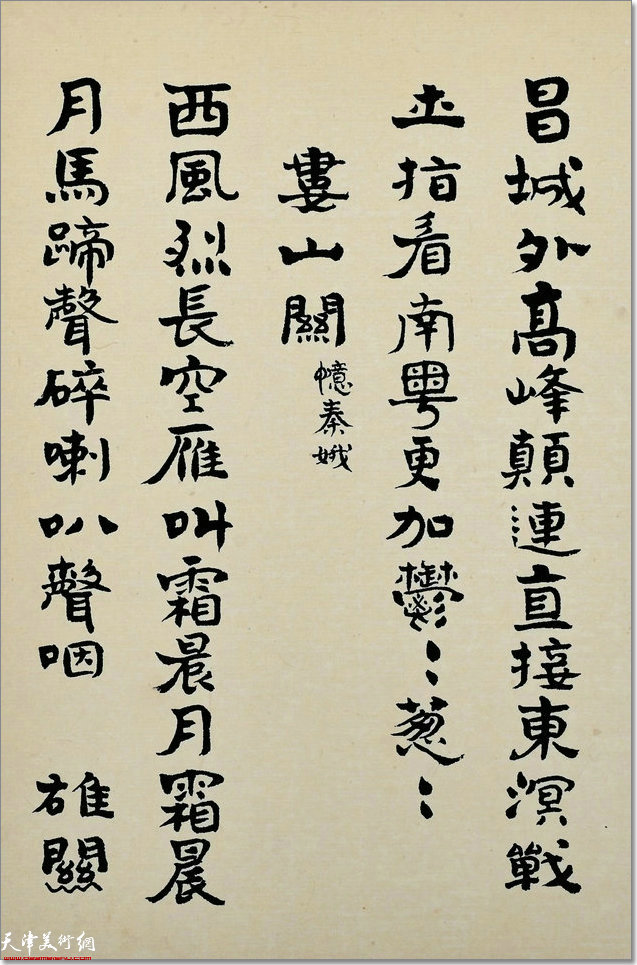 昌城外高峰顛連直接東溟戰
士指看南粤更加鬱〻葱〻
婁山關
憶秦娥
西風烈長空雁叫霜晨月霜晨
月馬蹄聲碎喇叭聲咽 雄關
天津美術網